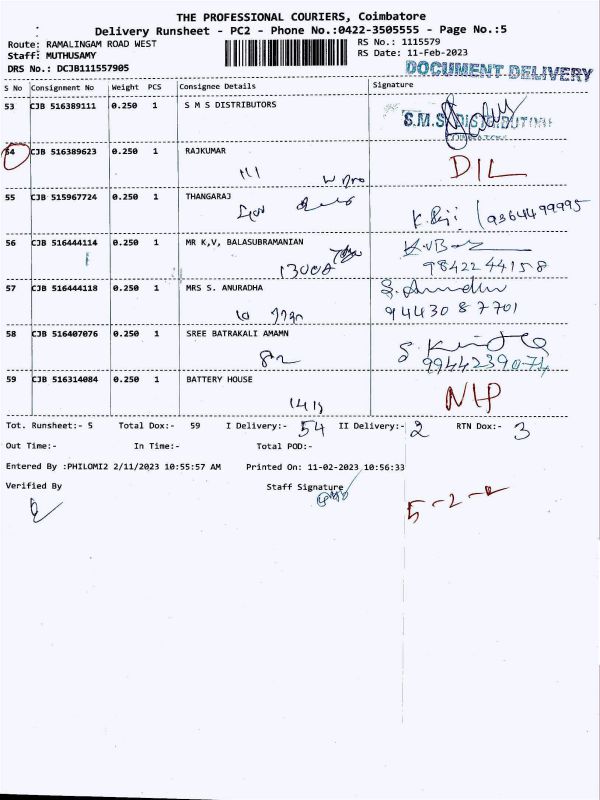 THE PROFESSIONAL COURIERS, Coimbatore
Delivery Runsheet - PC2 - Phone No.:0422-3505555 - Page No.:5
Route: RAMALINGAM ROAD WEST RS No.: 1115579
Staff: MUTHUSAMY RS Date: 11-Feb-2023
DRS No.: DCJB111557905 DOCUMENT DELIVERY
S No Consignment No Weight PCS Consignee Details Signature
53 CJB 516389111 0.250 1 S M S DISTRIBUTORS
S.M.S. DISTRIBUTORS
54 CJB 516389623 0.250 1 RAJKUMAR
DIL
55 CJB 515967724 0.250 1 THANGARAJ
9364499995
56 CJB 516444114 0.250 1 MR K,V, BALASUBRAMANIAN
98422 44158
57 CJB 516444118 0.250 1 MRS S. ANURADHA
94430 87701
58 CJB 516407076 0.250 1 SREE BATRAKALI AMAMN
9944239074
59 CJB 516314084 0.250 1 BATTERY HOUSE
NLP
Tot. Runsheet:- 5 Total Dox:- 59 I Delivery:- 54 II Delivery:- 2 RTN Dox:- 3
Out Time:- In Time:- Total POD:-
Entered By :PHILOMI2 2/11/2023 10:55:57 AM Printed On: 11-02-2023 10:56:33
Verified By Staff Signature
5-2-2